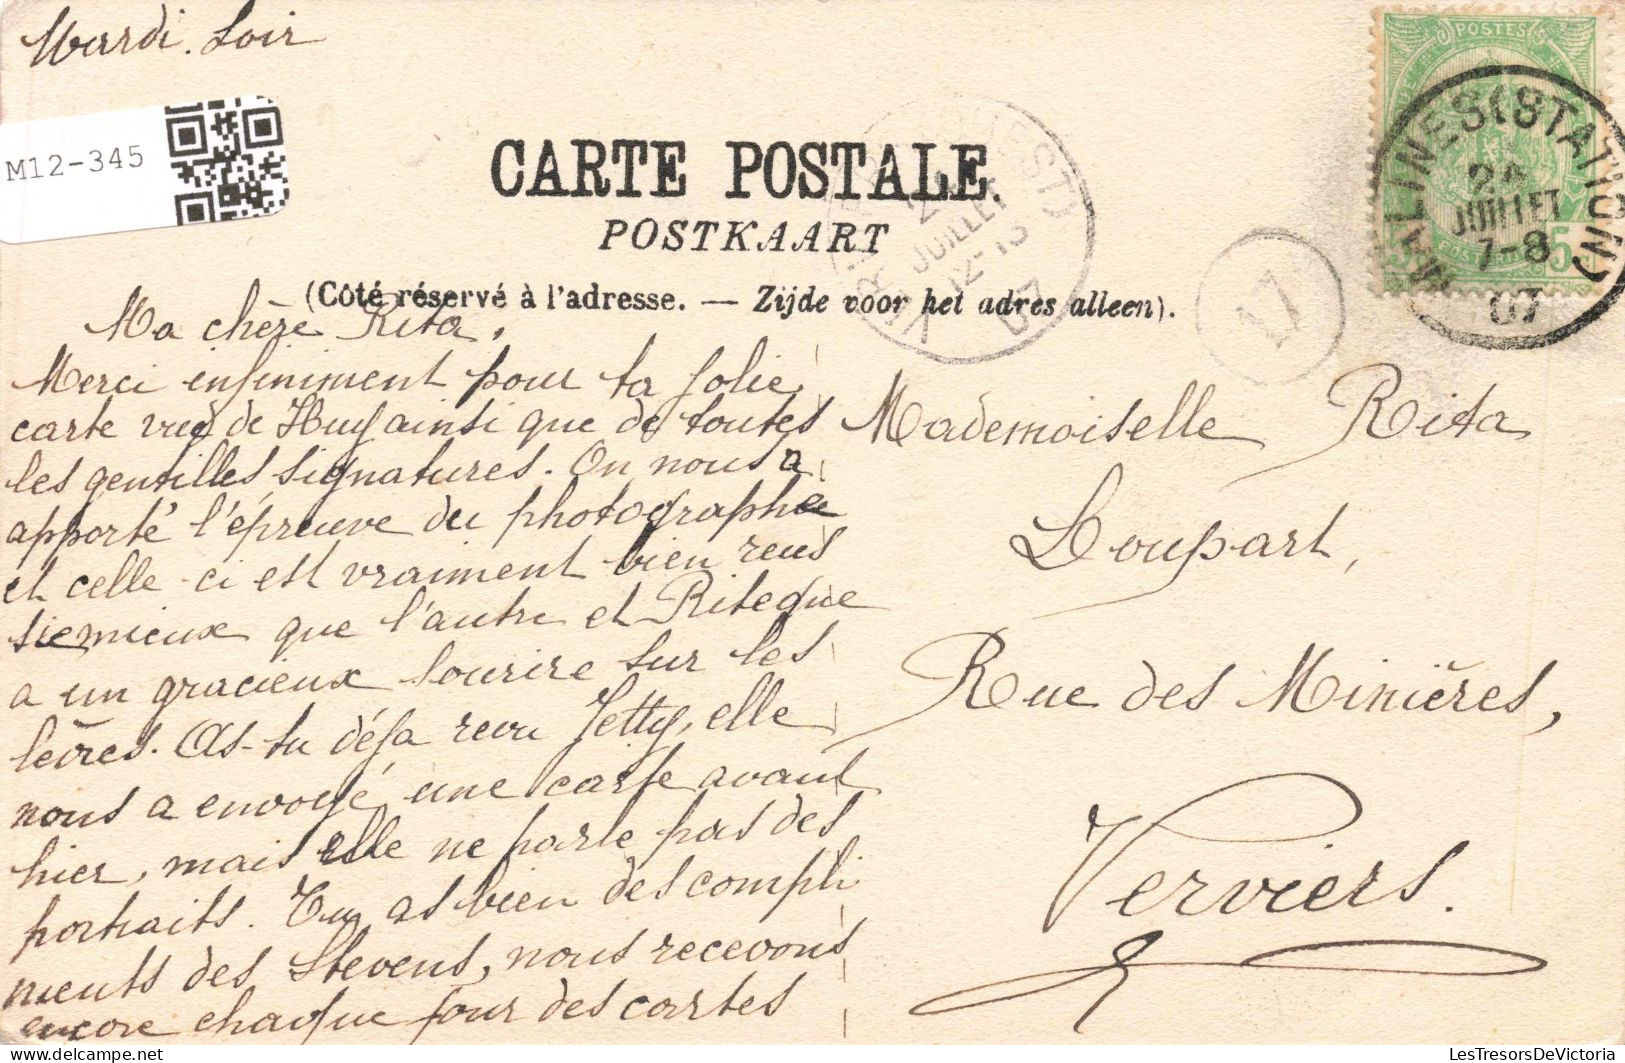 Mardi. Soir
M12-345
CARTE POSTALE.
POSTKAART
(Côté réservé à l'adresse. — Zijde voor het adres alleen).
POSTES
MALINES (STATION)
24
JUILLET
7-8
07
JUILLET
12-13
07
17
Ma chère Rita,
Merci infiniment pour ta jolie
carte vue de Huy ainsi que de toutes
les gentilles signatures. On nous a
apporté l'épreuve du photographe
et celle-ci est vraiment bien reus
sie mieux que l'autre et
a un gracieux sourire sur les
lèvres. As-tu déjà revu Jetty, elle
nous a envoyé une carte avant
hier, mais elle ne parle pas des
portraits. Tu as bien des compli
ments des Stevens, nous recevons
encore chaque jour des cartes
Mademoiselle Rita
Loupart,
Rue des Minières,
Verviers.
LesTresorsDeVictoria